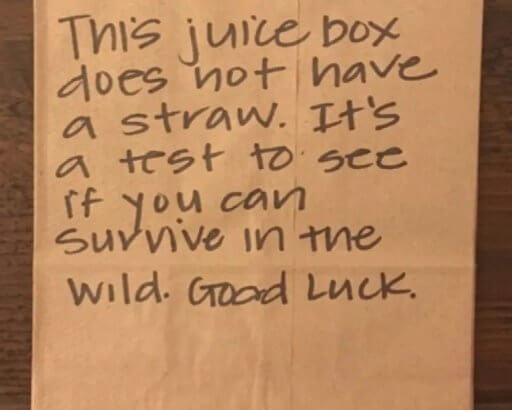 This juice box
does not have
a straw. It's
a test to see
if you can
survive in the
wild. Good Luck.